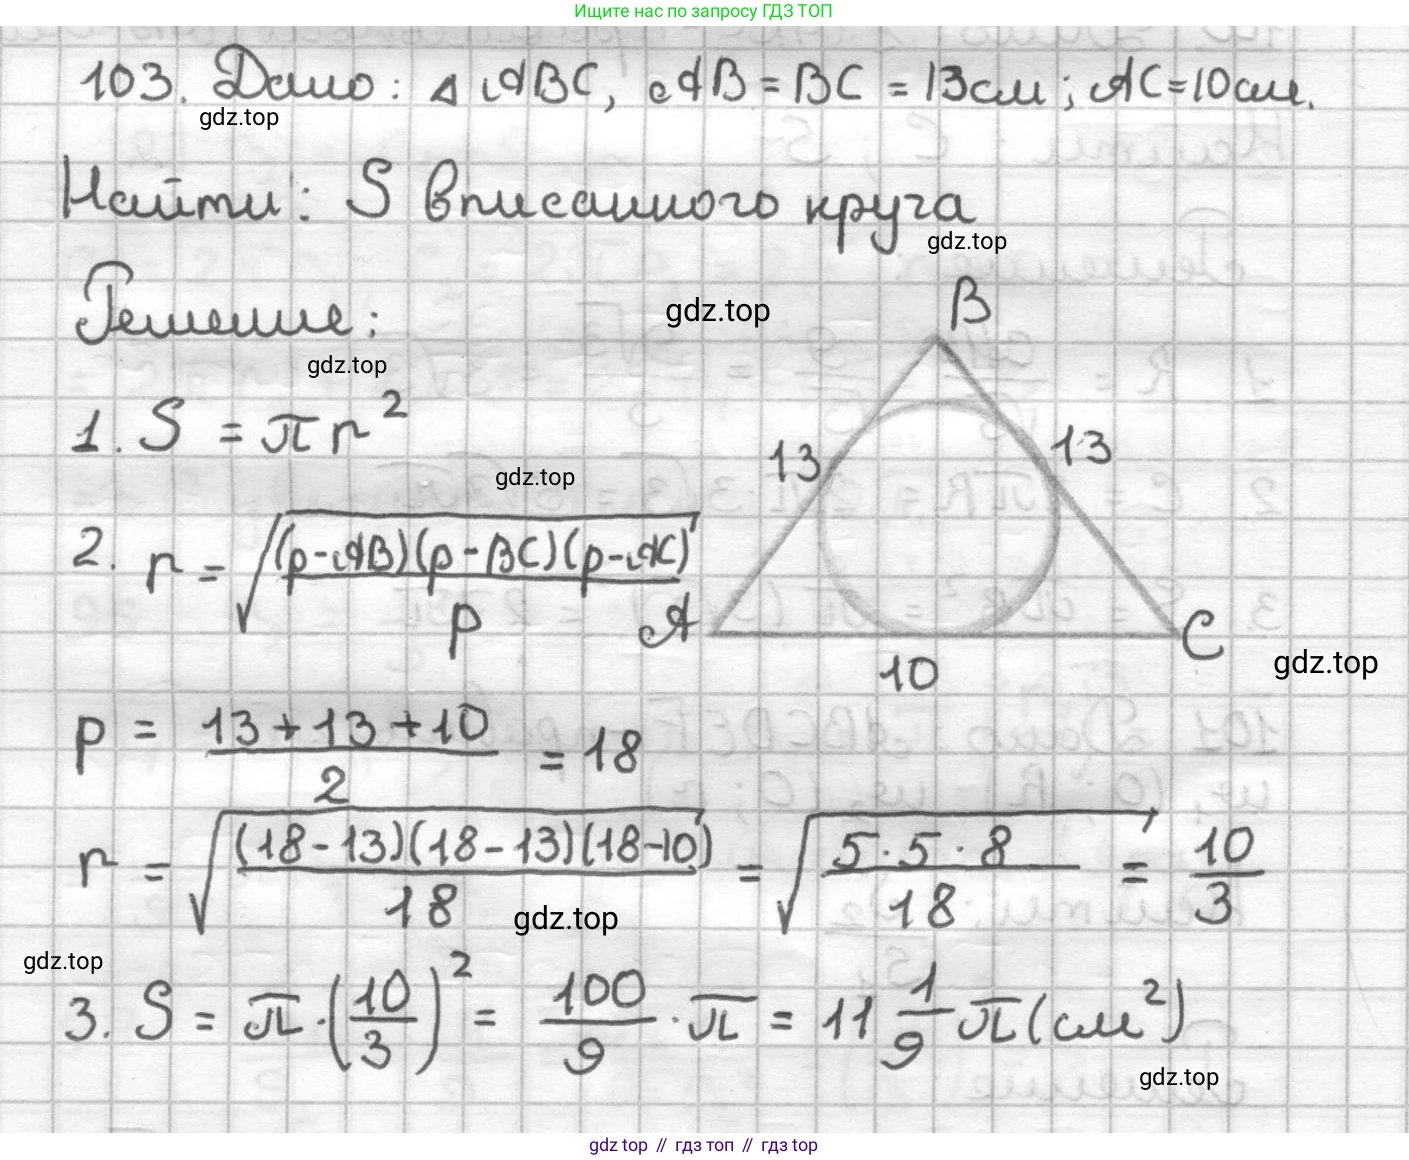 Ищите нас по запросу ГДЗ ТОП
103. Дано: △ ABC, AB = BC = 13 см; AC = 10 см.
gdz.top
Найти: S вписанного круга
gdz.top
Решение:
gdz.top
B
gdz.top
1. S = πr²
13
13
gdz.top
2. r = √((p-AB)(p-BC)(p-AC)/p)
A
C
10
gdz.top
p = (13+13+10)/2 = 18
r = √((18-13)(18-13)(18-10)/18) = √(5·5·8/18) = 10/3
gdz.top
gdz.top
3. S = π·(10/3)² = 100/9 · π = 11 1/9 π (см²)
gdz.top
gdz top // гдз топ // гдз top